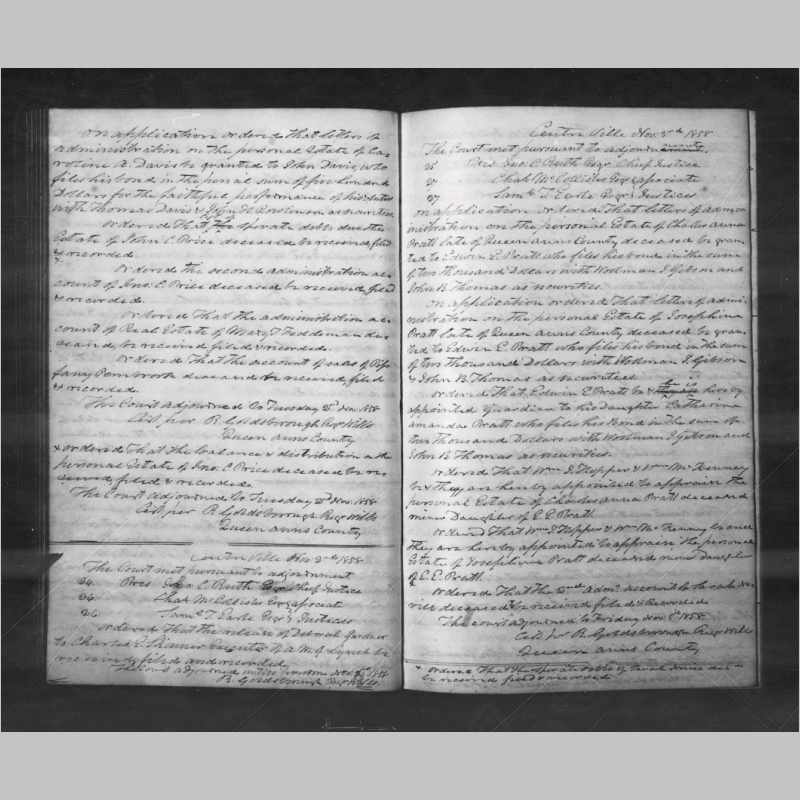 on application ordered that letters of
administration on the personal Estate of Ca
roline A. Davis be granted to John Davis, who
files his bond in the penal sum of five hundred
Dollars for the faithful performance of his duties
with Thomas Davis & John H. as securities.
ordered That the sperate debts due the
Estate of John C. Price deceased be received filed
& recorded.
Ordered the second administration ac
count of Jno. C. Price deceased be received filed
& recorded.
ordered That the administration ac
count of Real Estate of Mary T Feddeman de
ceased be received filed & recorded.
ordered That the account of sales of
fany Pennworth deceased be received, filed
& recorded.
This Court adjourned to Tuesday 2d Nov. 1858
Cert per R. Goldsborough Regr Wills
Queen Anns County
& ordered That the balance & distribution on the
personal Estate of Jno. C. Price deceased be re
ceived, filed & recorded.
The Court adjourned to Tuesday 2d Nov. 1858
Cert per R. Goldsborough Regr Wills
Queen Anns County
Centre Ville Nov 2nd 1858
The Court met pursuant to adjournment
26 Pres Jno. C. Ruth Esqr Chief Justice
26 Chas McCollister Esqr associate
26 Saml T. Earle Esqr Justices
ordered that the release of Gardner
to Charles E. Skinner Executor of A. M. G. Lynch be
received filed and recorded.
The Court adjourned until Nov 1858
R. Goldsborough Regr Wills
Centre Ville Nov 3d 1858
The Court met pursuant to adjournment.
25 Pres Jno. C. Ruth Esqr Chief Justice
27 Chas McCollister Esqr associate
27 Saml T. Earle Esqr Justices
on application ordered That letters of admi
nistration on the personal Estate of Charles anna
Pratt late of Queen anns County deceased be gran
ted to Edwin E. Pratt who files his bond in the sum
of two thousand Dollars with Woolman J. Gibson and
John B Thomas as securities.
on application ordered That letters of admi
nistration on the personal Estate of Josephine
Pratt late of Queen anns County deceased be gran
ted to Edwin E. Pratt who files his bond in the sum
of two thousand Dollars with Woolman J. Gibson
& John B Thomas as securities
ordered That, Edwin E. Pratt be & he is hereby
appointed Guardian to his Daughter Catharine
amanda Pratt who files his Bond in the sum of
two thousand Dollars with Woolman J. Gibson and
John B Thomas as securities.
ordered That Wm J. Hopper & Wm McKenney
be & they are hereby appointed to appraise the
personal Estate of Charles anna Pratt deceased
minor Daughter of E. E. Pratt.
ordered That Wm J Hopper & Wm McKenney be and
they are hereby appointed to appraise the personal
Estate of Josephine Pratt deceased minor Daughter
of E. E. Pratt.
ordered That the 2nd admn account
deceased be received filed & recorded
The court adjourned to Friday Nov 5th 1858
Cert per R. Goldsborough Regr Wills
Queen anns County
& ordered That the sperate debts of
be received filed & recorded